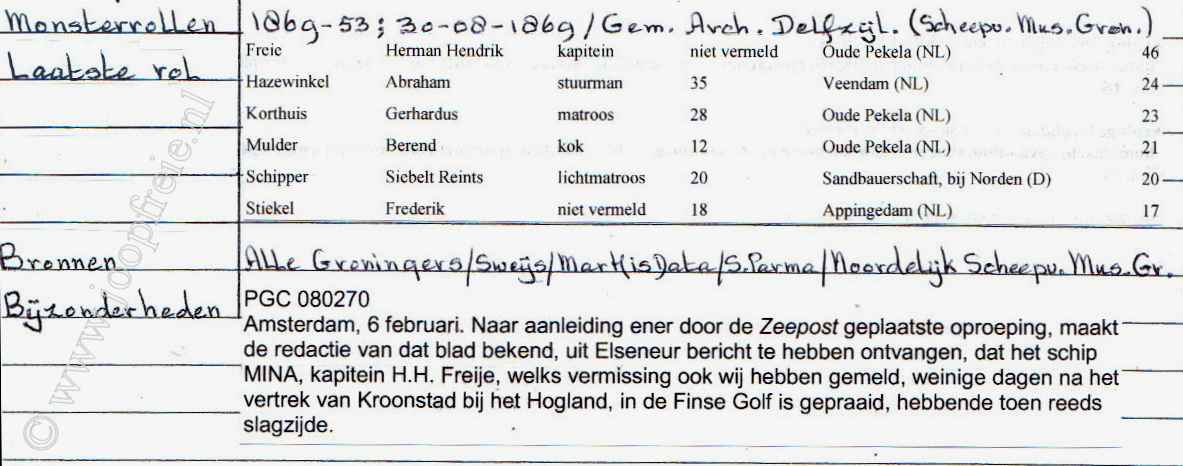 Monsterrollen 1869-53; 30-08-1869/Gem. Arch. Delfzijl. (Scheepv. Mus. Gron.)
Laatste rol
Freie Herman Hendrik kapitein niet vermeld Oude Pekela (NL) 46
Hazewinkel Abraham stuurman 35 Veendam (NL) 24
Korthuis Gerhardus matroos 28 Oude Pekela (NL) 23
Mulder Berend kok 12 Oude Pekela (NL) 21
Schipper Siebelt Reints lichtmatroos 20 Sandbauerschaft, bij Norden (D) 20
Stiekel Frederik niet vermeld 18 Appingedam (NL) 17
Bronnen Alle Groningers/Sweijs/MarHisData/S.Parma/Noordelijk Scheepv. Mus. Gr.
Bijzonderheden
PGC 080270
Amsterdam, 6 februari. Naar aanleiding ener door de Zeepost geplaatste oproeping, maakt
de redactie van dat blad bekend, uit Elseneur bericht te hebben ontvangen, dat het schip
MINA, kapitein H.H. Freije, welks vermissing ook wij hebben gemeld, weinige dagen na het
vertrek van Kroonstad bij het Hogland, in de Finse Golf is gepraaid, hebbende toen reeds
slagzijde.
© www.joopfreie.nl